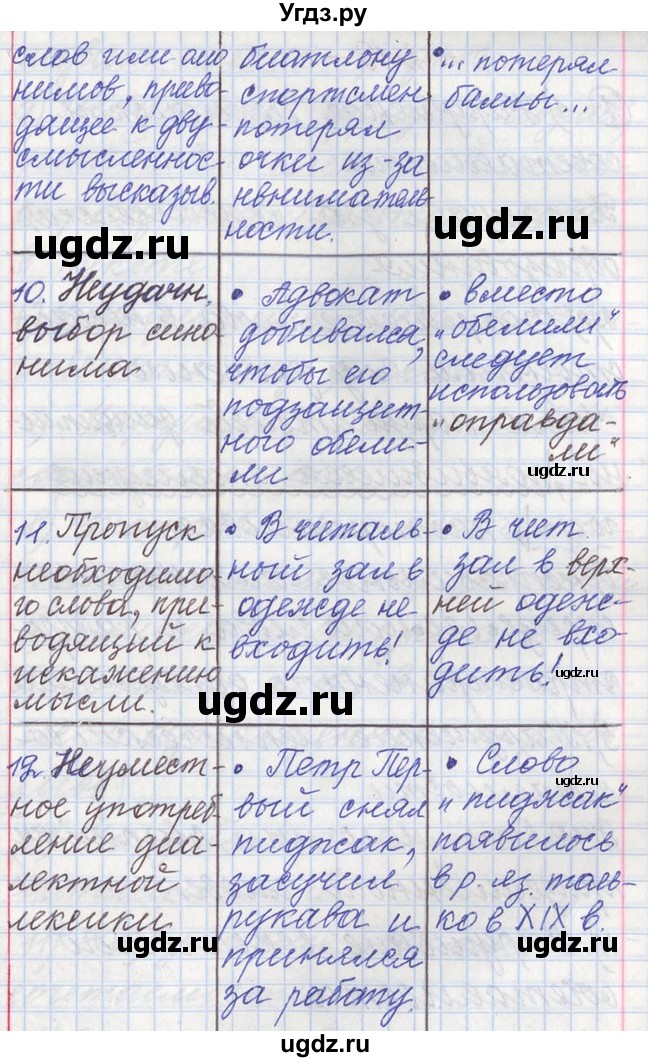 Угдз.ру
слов или омо
нимов, приво-
дящее к дву-
смысленнос-
ти высказыв.
биатлону
спортсмен
потерял
очки из-за
невниматель
ности.
•... потерял
баллы...
ugdz.ru
ugdz.ru
10. Неудачн.
выбор сино
нима
• Адвокат
добивался,
чтобы его
подзащит-
ного обели-
ли
• вместо
„обелили"
следует
использовать
„оправда-
ли"
ugdz.ru
11. Пропуск
необходимо-
го слова, при-
водящий к
искажению
мысли.
• В читаль-
ный зал в
одежде не
входить!
• В чит.
зал в верх-
ней одеж-
де не вхо-
дить!
ugdz.ru
ugdz.ru
12. Неумест-
ное употреб
ление диа-
лектной
лексики
• Петр Пер-
вый снял
пиджак,
засучил
рукава и
принялся
за работу.
• Слово
„пиджак"
появилось
в р. яз. толь-
ко в XIX в.
ugdz.ru
ugdz.ru
ugdz.ru